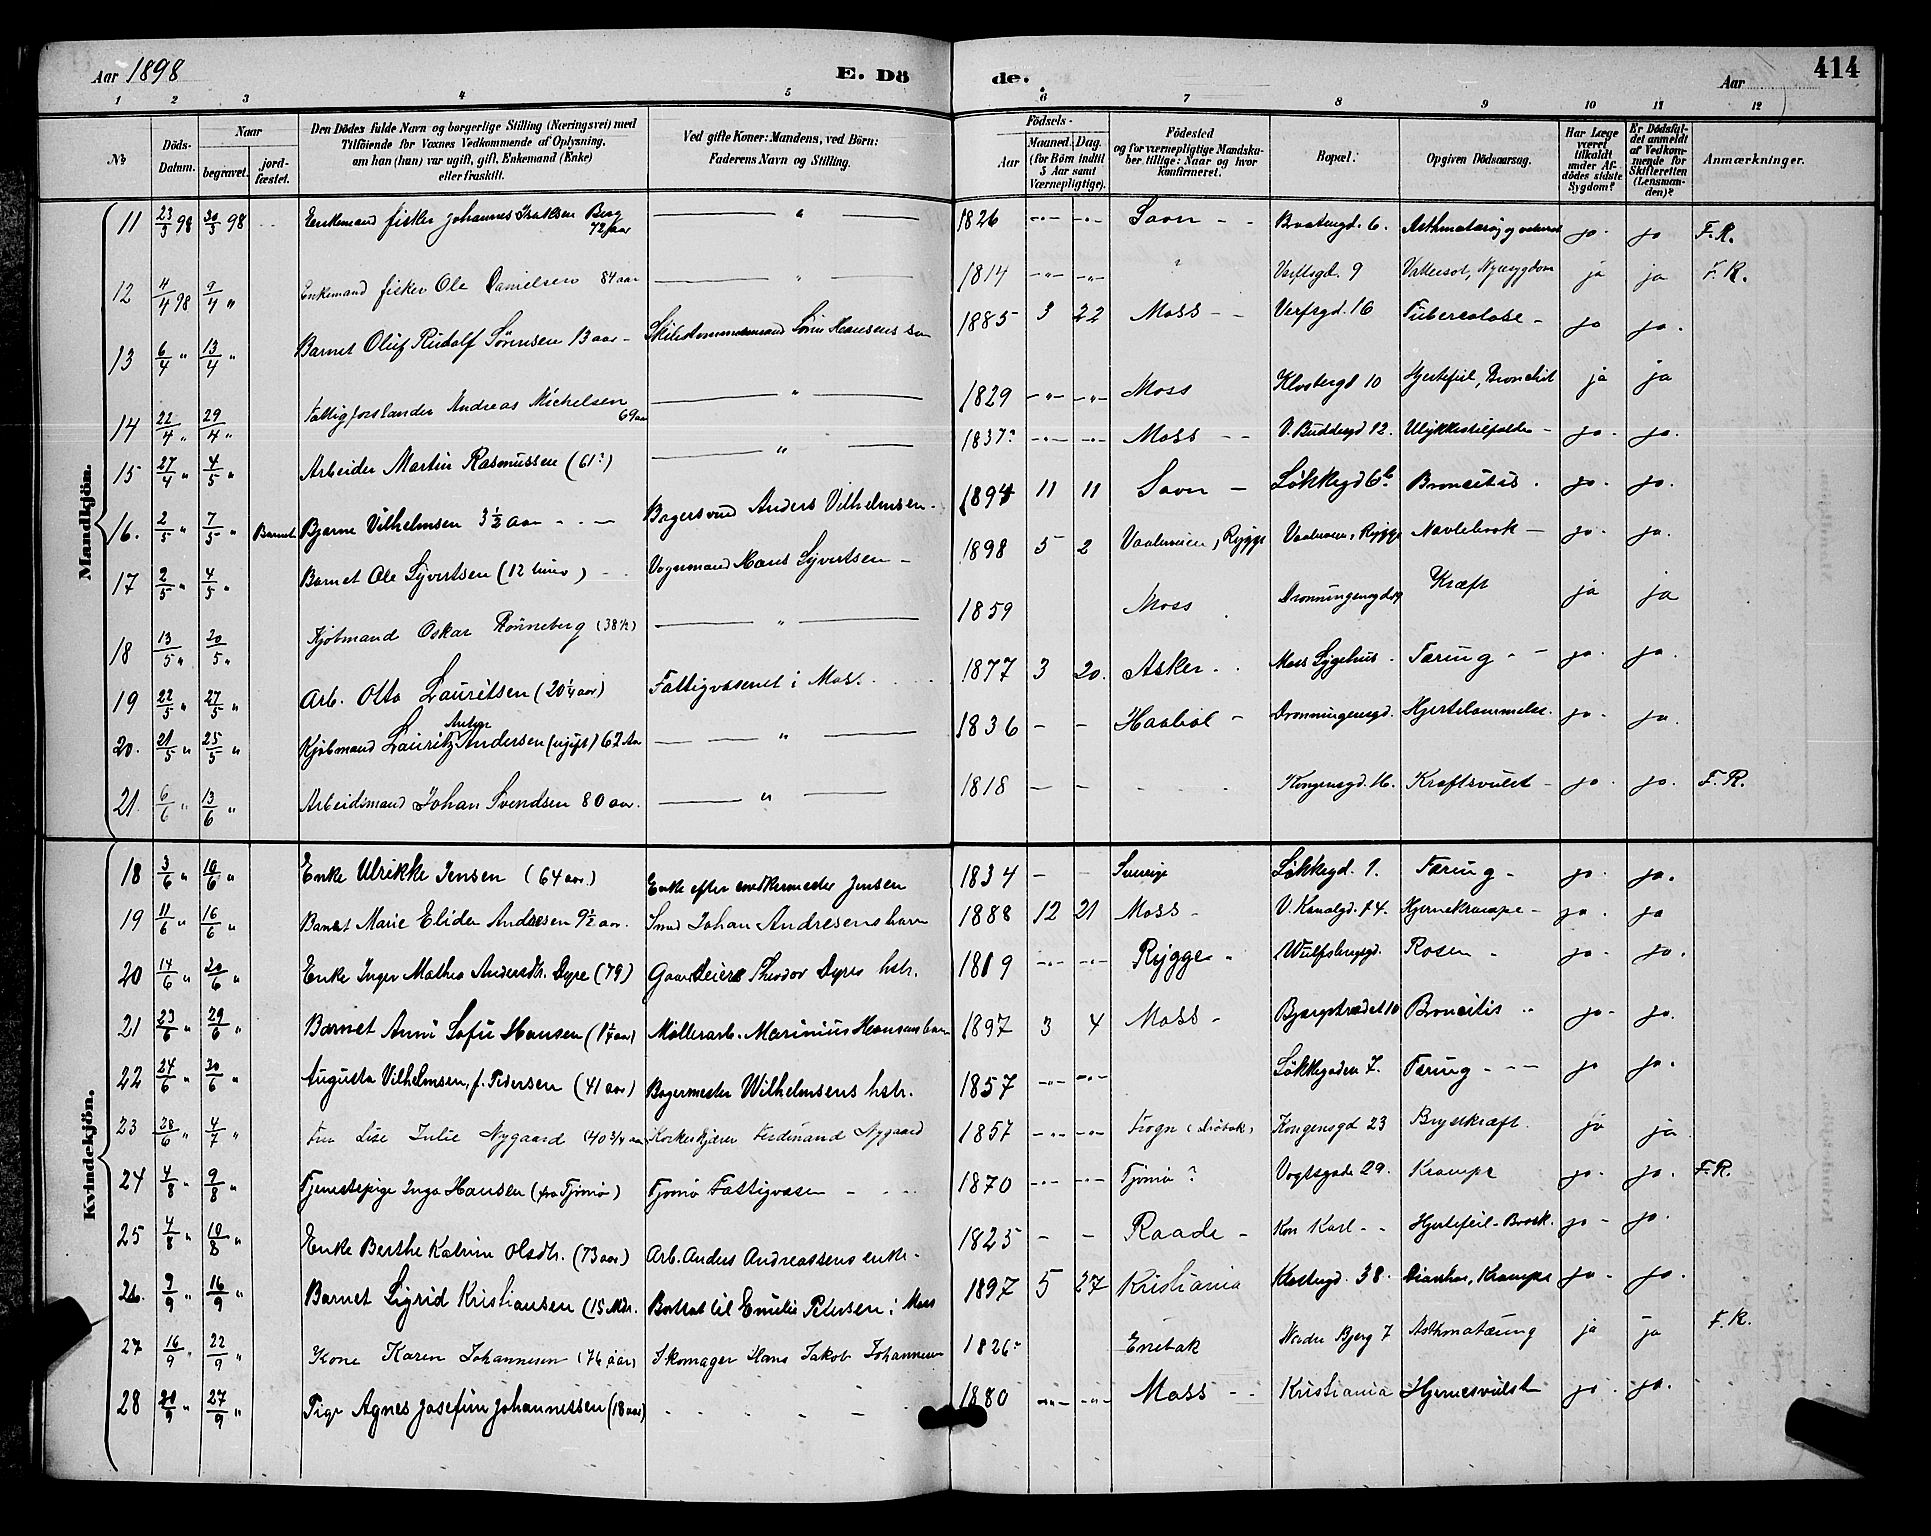 Aar 1898 E. Dö de. Aar 414
1 2 3 4 5 6 7 8 9 10 11 12
№ Döds-Datum. Naar begravet. jordfæstet. Den Dödes fulde Navn og borgerlige Stilling (Næringsvei) med Tilföiende for Voxnes Vedkommende af Oplysning, om han (hun) var ugift, gift, Enkemand (Enke) eller fraskilt. Ved gifte Koner: Mandens, ved Börn: Faderens Navn og Stilling. Födsels- Aar Maaned. Dag. (for Börn indtil 5 Aar samt Værnepligtige). Födested og for værnepligtige Mandskaber tillige: Naar og hvor konfirmeret. Bopæl. Opgiven Dödsaarsag. Har Læge været tilkaldt under Afdödes sidste Sygdom? Er Dödsfaldet anmeldt af Vedkommende for Skifteretten (Lensmanden)? Anmærkninger.
Mandkjön.
11 23/3 98 30/3 98 Enkemand fisker Johannes Isaksen Berg 72 aar — " — 1826 -"- -"- Savn - - 6. ja ja F. R.
12 4/4 98 9/4 " Enkemand fisker Ole Danielsen 84 aar — " — 1814 -"- -"- ? Verftsgd. 9 Vattersot, Nyresygdom ja ja F. R.
13 6/4 " 13/4 " Barnet Oluf Rudolf Sørensen 13 aar - Søn 1885 3 22 Moss - - Verfsgd. 16 Tuberculose - ja ja.
14 22/4 " 29/4 " Fattigforstander Andreas Michelsen 69 aar — " — 1829 -"- -"- Moss Klostergd 10 Hjertefeil, Bronchit ja ja
15 27/4 " 4/5 " Arbeider Martin Rasmussen (61?) — " — 1837? -"- -"- Moss - - V. Buddesgd 12. Ulykkestilfælde - ja. ja.
16. 2/5 " 7/5 " Barnet Bjarne Vilhelmsen 3 1/2 Aar - - - Bagersvend Anders Vilhelmsen - 1894 11 11 Savn - Løkkegd 6b. Broncitis . ja. ja.
17 2/5 " 4/5 " Barnet Ole Syvertsen (12 timer) - Vognmand Hans Syvertsen - 1898 5 2 Vaalerveien, Rygge Vaalerveien, Rygge Navlebrok - ja. ja.
18 13/5 " 20/5 " Kjøbmand Oskar Rønneberg (38 1/2) — " — 1859 Moss Kræft ja ja
19 22/5 " 27/5 " Arb. Otto Lauritsen (20 1/4 aar) Fattigvæsenet i Moss. 1877 3 20. Asker - . Moss Sygehus . Tæring - - ja. ja.
20. 21/5 " 25/5 " Kjøbmand Lauritz Anton Andersen (ugift) 62 Aar — " — 1836 - - Haabøl - Dronningensgd. Hjertelammelse. ja. ja.
21. 6/6 " 13/6 " Arbeidsmand Johan Svendsen 80 aar. — " — 1818 - - - Kongensgd. 16. Kræftsvulst - ja. ja. F. R.
Kvindekjön.
18 3/6 " 10/6 " Enke Ulrikke Jensen (64 aar) Enke efter Jensen 1834 - - Sverige Løkkegd. 1. Tæring - ja. ja.
19 11/6 " 16/6 " Barnet Marie Elida Andresen 9 1/2 aar. Smed Johan Andresens barn 1888 12 21 Moss - V. Kanalgd. 14. Hjernekrampe - ja. ja
20 14/6 " 20/6 " Enke Inger Mathea Andersdtr. Dyre (79) Gaardeier Theodor Dyres hstr. 1819 -"- -"- Rygge - Wulfsbergsgd. Rosen - ja. ja.
21 23/6 " 29/6 " Barnet Anna Sofie Hansen (1 1/4 aar) Møllerarb. Marinius Hansens barn 1897 3 4 Moss - Bjergstrædet 10 Broncitis " ja. ja.
22 24/6 " 30/6 " Augusta Vilhelmsen, f. Pedersen (41 aar) Bagermester Wilhelmsens hstr. 1857 -"- -"- Løkkegaden 7. Tæring - - - ja ja.
23 28/6 " 4/7 " Fru Lise Julie Nygaard (40 3/4 aar) Ferdinand Nygaard 1857 -"- -"- Frogn (Drøbak) Kongensgd 23 Brystkræft. ja ja
24 4/8 " 9/8 " Tjenestepige Inga Hansen (fra Tjømø) Tjømø Fattigvæsen - - - 1870 -"- -"- Tjømø ? Vogtsgade 29. Krampe ja. ja. F. R.
25 4/8 " 10/8 " Enke Berthe Katrine Olsdtr. (73 aar) Arb. Anders Andreassens enke - 1825 - - Raade - Hjertefeil - ja - ja.
26. 9/9 " 16/9 " Barnet Sigrid Kristiansen (15 Mdr. Bortsat til Emilie Petersen i Moss 1897 5 27 Kristiania 38. Diarrhoe, Krampe ja - ja.
27 16/9 " 22/9 " Kone Karen Johannesen (72 aar) Skomager Hans Jakob Johannesen 1826? Enebak Nedre Bjerg 7 Asthmatæring ja ja F. R.
28 20/9 " 27/9 " Pige Agnes Josefine Johannessen (18 aar) - - - - 1880 -"- -"- Moss - - Kristiania Hjernesvulst ja. ja.